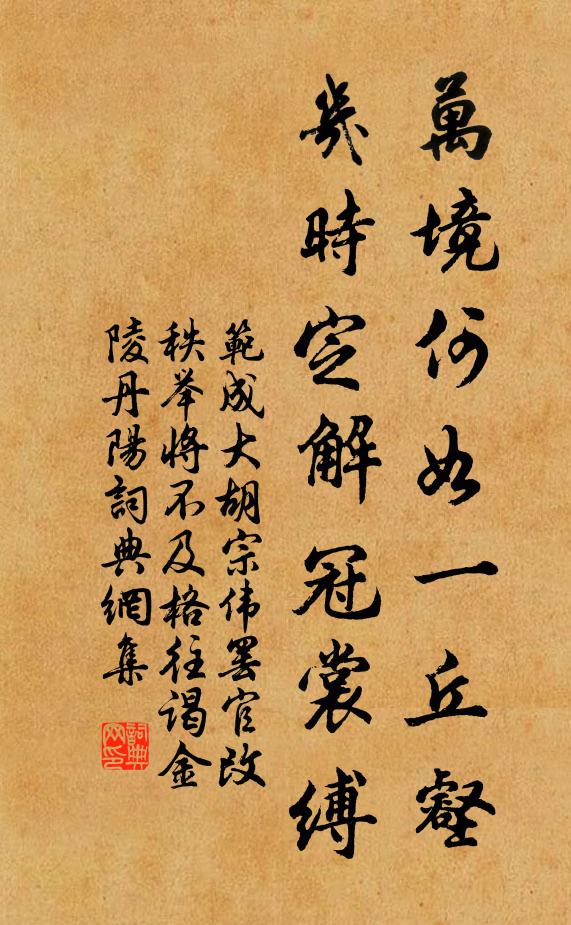 萬境何如一丘壑
幾時定解冠裳縛
範成大胡宗伟罢官改
秩举將不及格往谒金
陵丹陽詞典網集
詞典网印